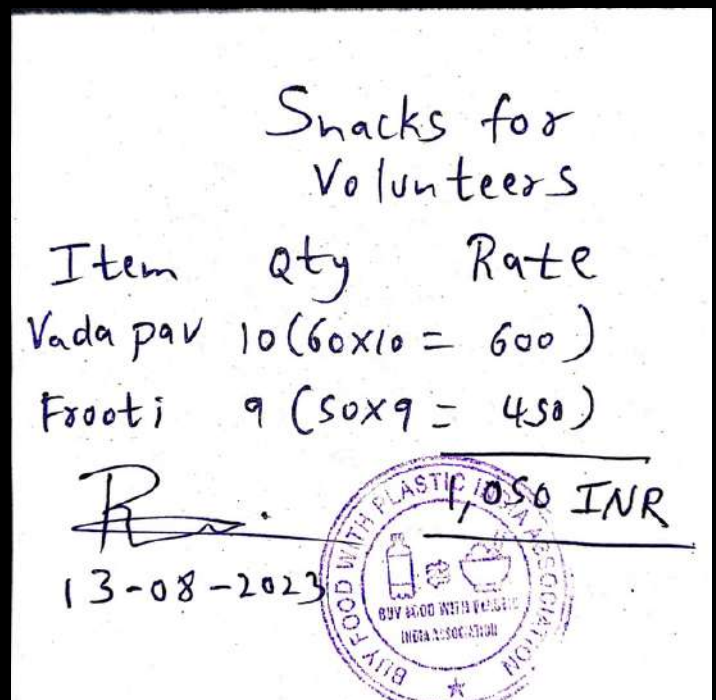 Snacks for
Volunteers
Item Qty Rate
Vada pav 10 (60x10 = 600)
Frooti 9 (50x9 = 450)
1,050 INR
13-08-2023
BUY FOOD WITH PLASTIC INDIA ASSOCIATION
BUY FOOD WITH PLASTIC
INDIA ASSOCIATION